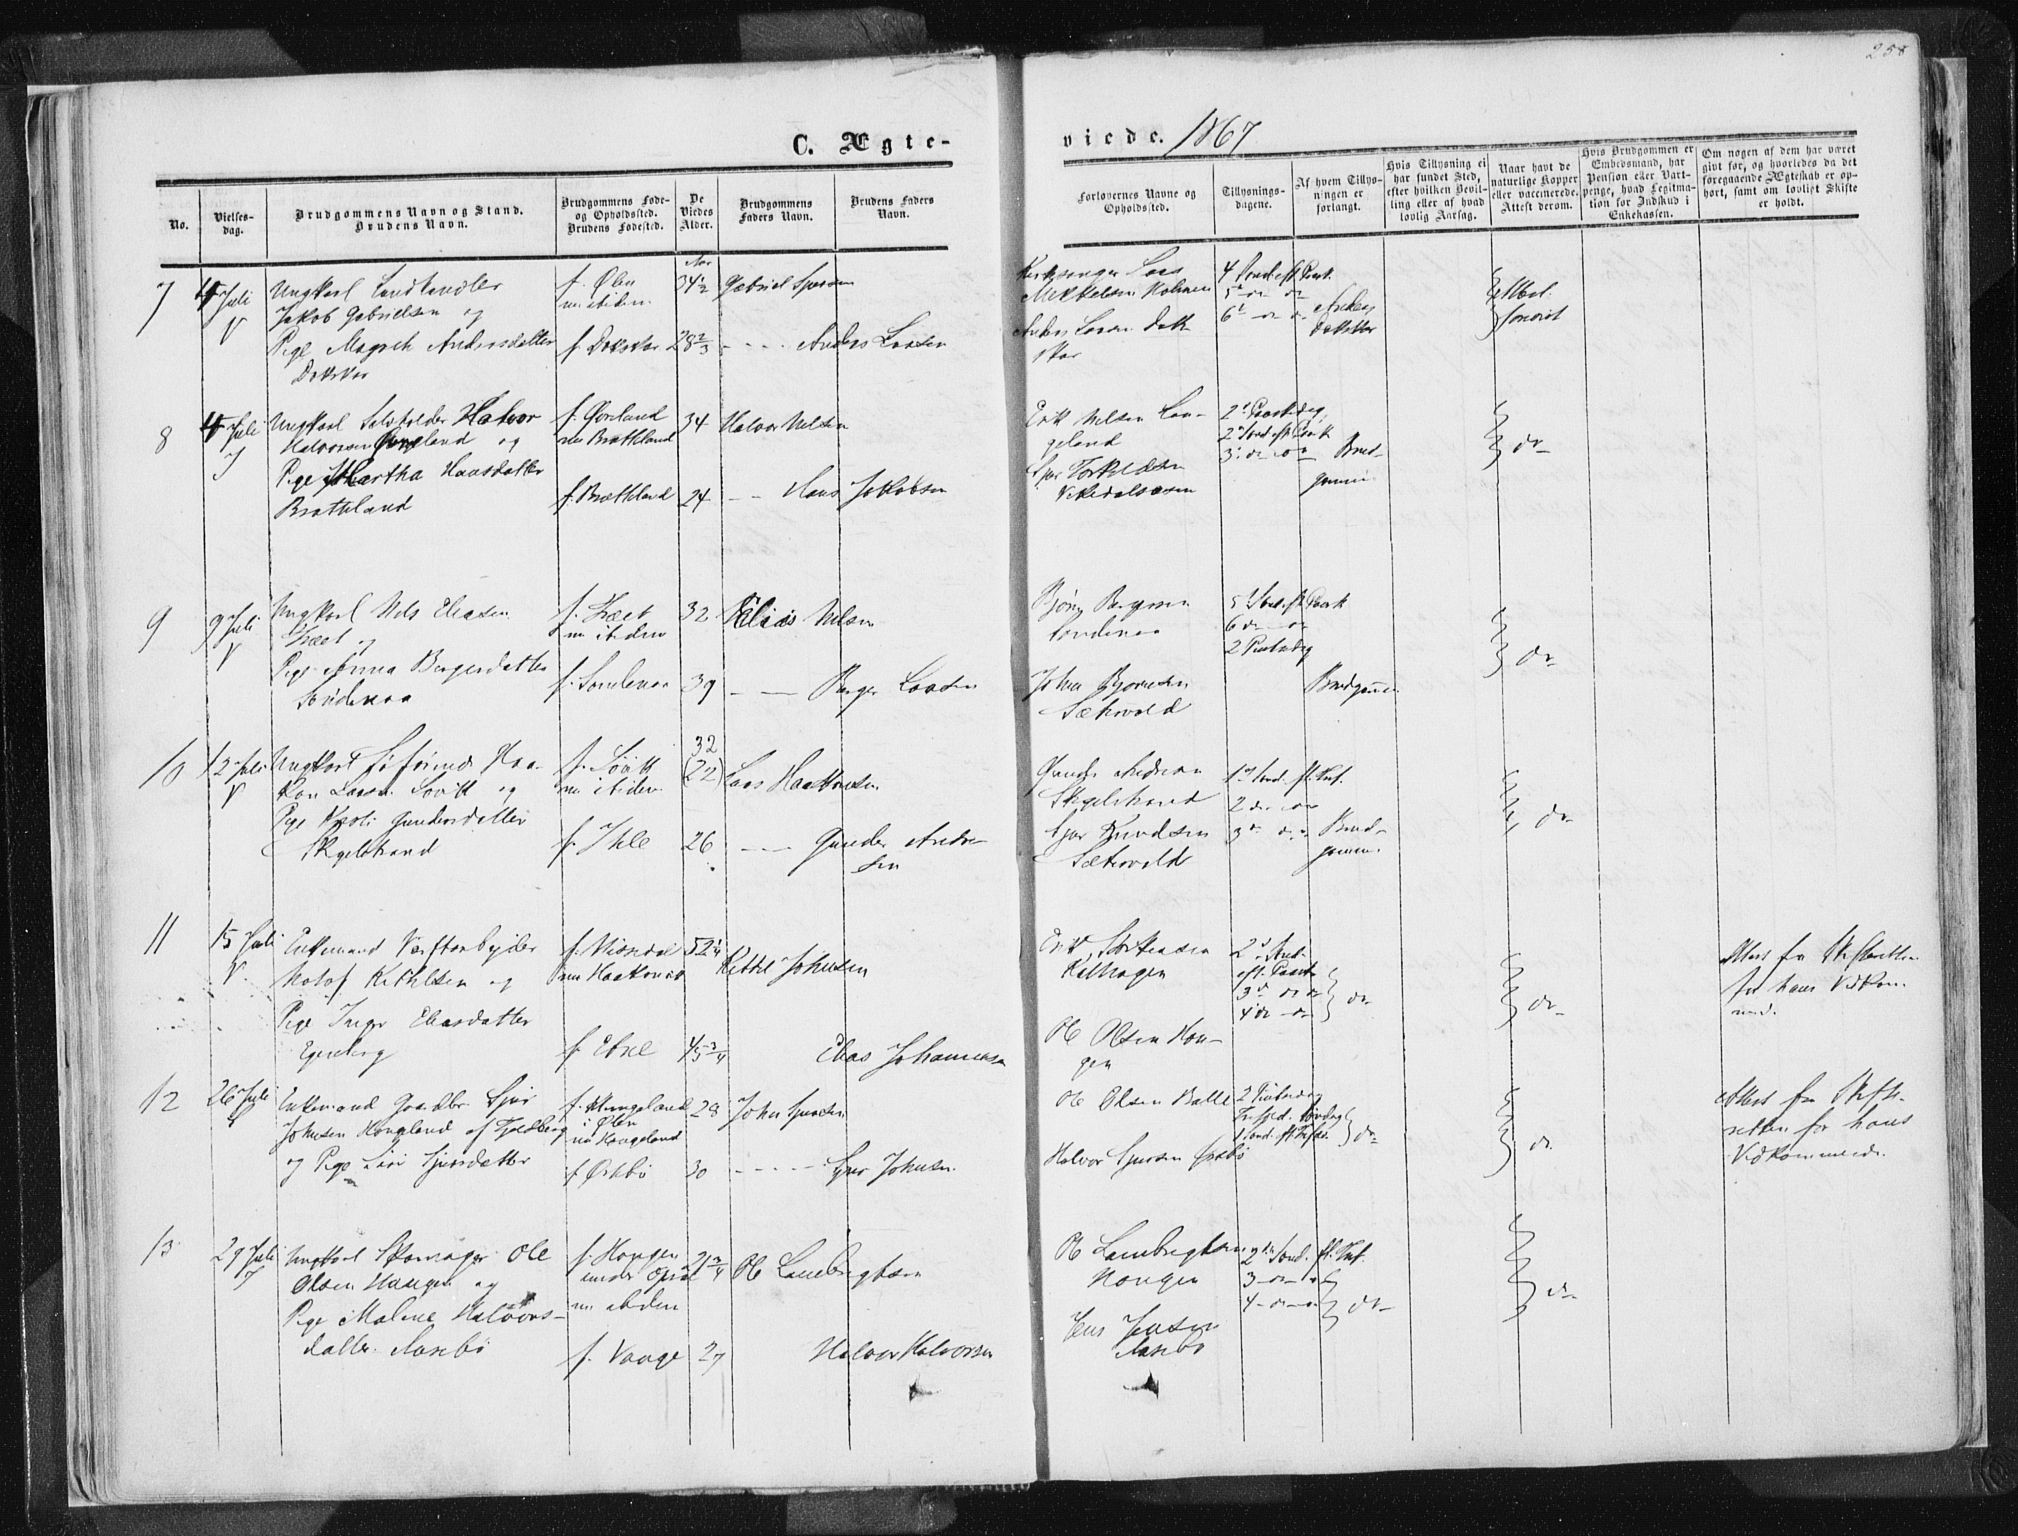 258
C. Ægte-
viede. 1867
No.
Vielses-
dag.
Brudgommens Navn og Stand.
Brudens Navn.
Brudgommens Føde-
og Opholdssted.
Brudens Fødested.
De
Viedes
Alder.
Brudgommens
Faders Navn.
Brudens Faders
Navn.
Forlovernes Navne og
Opholdssted.
Tillysnings-
dagene.
Af hvem Tillys-
ningen er
forlangt.
Hvis Tillysning ei
har fundet Sted,
efter hvilken Bevil-
ling eller af hvad
lovlig Aarsag.
Naar havt de
naturlige Kopper
eller vaccinerede.
Attest derom.
Hvis Brudgommen er
Embedsmand, har
Pension eller Vart-
penge, hvad Legitima-
tion for Indskud i
Enkekassen.
Om nogen af dem har været
givt før, og hvorledes da det
foregaaende Ægteskab er op-
hørt, samt om lovligt Skifte
er holdt.
7
4 Juli
V
Ungkarl Landhandler
Jakob Gabrielsen og
Pige Magreth Andersdatter
Dokskar
f. Ølen
nu ibiden
f. Dokskar
Aar
34 1/2
28 2/3
Gabriel Sjursen
Anders Larsen
Kirkesanger Lars
Mikkelsen Holmen
Anders Larsen Dok-
skar
4 Sond. eft. Paask.
5 do do
6 do do
Anders
Dokskar
8
4 Juli
I
Ungkarl Selveholder Halvor
Halvorsen Øvreland og
Pige Martha Hansdatter
Bratteland
f. Øvreland
nu Bratteland
f. Bratteland
34
24
Halvor Nilsen
Hans Jakobsen
Erik Nilsen Lan-
geland
Sjur Torkildsen
Vikedalsosen
2 Paaskedag,
2 Sond. eft. Paask
3 do do
Brud-
gommen
do
9
9 Juli
V
Ungkarl Nils Eliasen
og
Pige Anna Bergersdatter
Søndenaa
nu ibiden
f. Søndenaa
32
39
Elias Nilsen
Berger Larsen
Bjørn Bergersen
Søndenaa
Johan Bjørnsen
Sætervold
5 Sond. eft. Paask
6 do do
2 Pintsedag
Brudgommen
do
10
12 Juli
V
Ungkarl Haa-
kon Larsen Løvik og
Pige Kisti Gundersdatter
Skjelstrand
f. Løvik
nu ibiden
f. Ihle
32
(22)
26
Lars Haakonsen
Gunder Andre-
sen
Gunder Andresen
Skjelstrand
Sjur Knudsen
Sætervold
1 Sond. ft. Tref.
2 do do
3 do do
Brud-
gommen
do
11
15 Juli
V.
Enkemand Værftarbeider
Kethelsen og
Pige Inger Eliasdatter
Egeberg
nu Haakonvik
f. Etne
52 1/4
45 3/4
Kettel Johnsen
Elias Johannessen
Erik
Ole Olsen Hau-
gen
2 Sond.
eft. Paask
3 do do
4 do do
do
do
Attest fra Skifteretten
for hans Vedkom-
mend.
12
26 Juli
Enkemand Gaardbr. Sjur
Johnsen Haugland af Tysvær
og Pige Siri Sjursdatter
i Ølen
nu Haugeland
f. Øskbø
28
30
John Sjursen
Sjur Johnsen
Ole Olsen Balle
Halvor Sjursen Øskbø
2 Pintsedag
Trefold. Søndag
1 Sond. ft. Trefol.
do
do
Attest fra Skifte-
retten for hans
Vedkommende.
13
29 Juli
I
Ungkarl Skomager Ole
Olsen Haugen og
Pige Malene Halvors-
datter Aasebø
f. Haugen
under Opsal
nu ibiden
f. Vaage
21 3/4
27
Ole Lambrigtsen
Halvor Halvorsen
Ole Lambrigtsen
Haugen
Jens Jensen
Aasebø
2den Sond. ft. Tref.
3 do do
4 do do
do
do